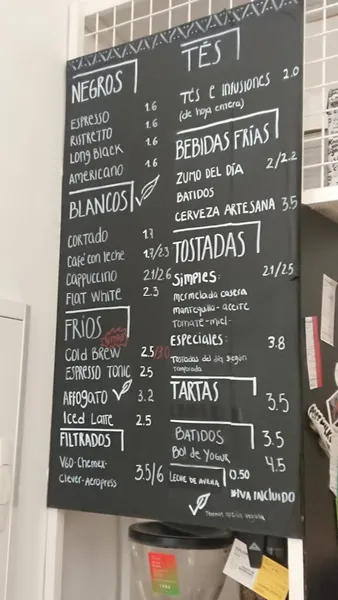 NEGROS
ESPRESSO 1.6
RISTRETTO 1.6
LONG BLACK 1.6
AMERICANO 1.6
BLANCOS
CORTADO 1.7
Café con leche 1.7/2.3
CAPPUCCINO 2.1/2.6
FLAT WHITE 2.3
FRÍOS
COLD BREW 2.5/3.0
ESPRESSO TONIC 2.5
AFFOGATO 3.2
ICED LATTE 2.5
FILTRADOS
V60-Chemex-
Clever-Aeropress 3.5/6
TÉS
TÉS E INFUSIONES 2.0
(de hoja entera)
BEBIDAS FRÍAS
ZUMO DEL DÍA 2/2.2
BATIDOS
CERVEZA ARTESANA 3.5
TOSTADAS
Simples: 2.1/2.5
mermelada casera
mantequilla-aceite
Tomate-miel-
ESPECIALES: 3.8
Tostadas del día según
temporada
TARTAS 3.5
BATIDOS 3.5
Bol de YOGUR 4.5
LECHE DE AVENA 0.50
*IVA INCLUIDO
Tenemos opción